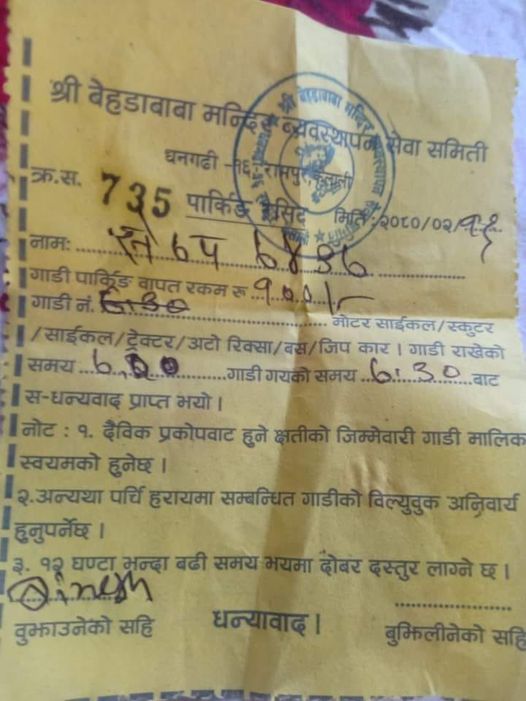 श्री बेहडाबाबा मन्दिर व्यवस्थापन सेवा समिती
धनगढी -१६ रामपुर, कैलाली
क्र.स. 735 पार्किङ रसिद मिति: २०८०/०२/१९
नाम: से ७ प ६४३६
गाडी पार्किङ वापत रकम रु. १००/-
गाडी नं. 6.30 मोटर साईकल/स्कुटर
/साईकल/ट्रेक्टर/अटो रिक्सा/बस/जिप कार । गाडी राखेको
समय 6.00 गाडी गयको समय 6.30 बाट
स-धन्यवाद प्राप्त भयो ।
नोट : १. दैविक प्रकोपवाट हुने क्षतीको जिम्मेवारी गाडी मालिक
स्वयमको हुनेछ ।
२.अन्यथा पर्चि हरायमा सम्बन्धित गाडीको विल्युवुक अनिवार्य
हुनुपर्नेछ ।
३. १२ घण्टा भन्दा बढी समय भयमा दोबर दस्तुर लाग्ने छ ।
Dinesh
वुझाउनेको सहि धन्यावाद । बुझिलीनेको सहि